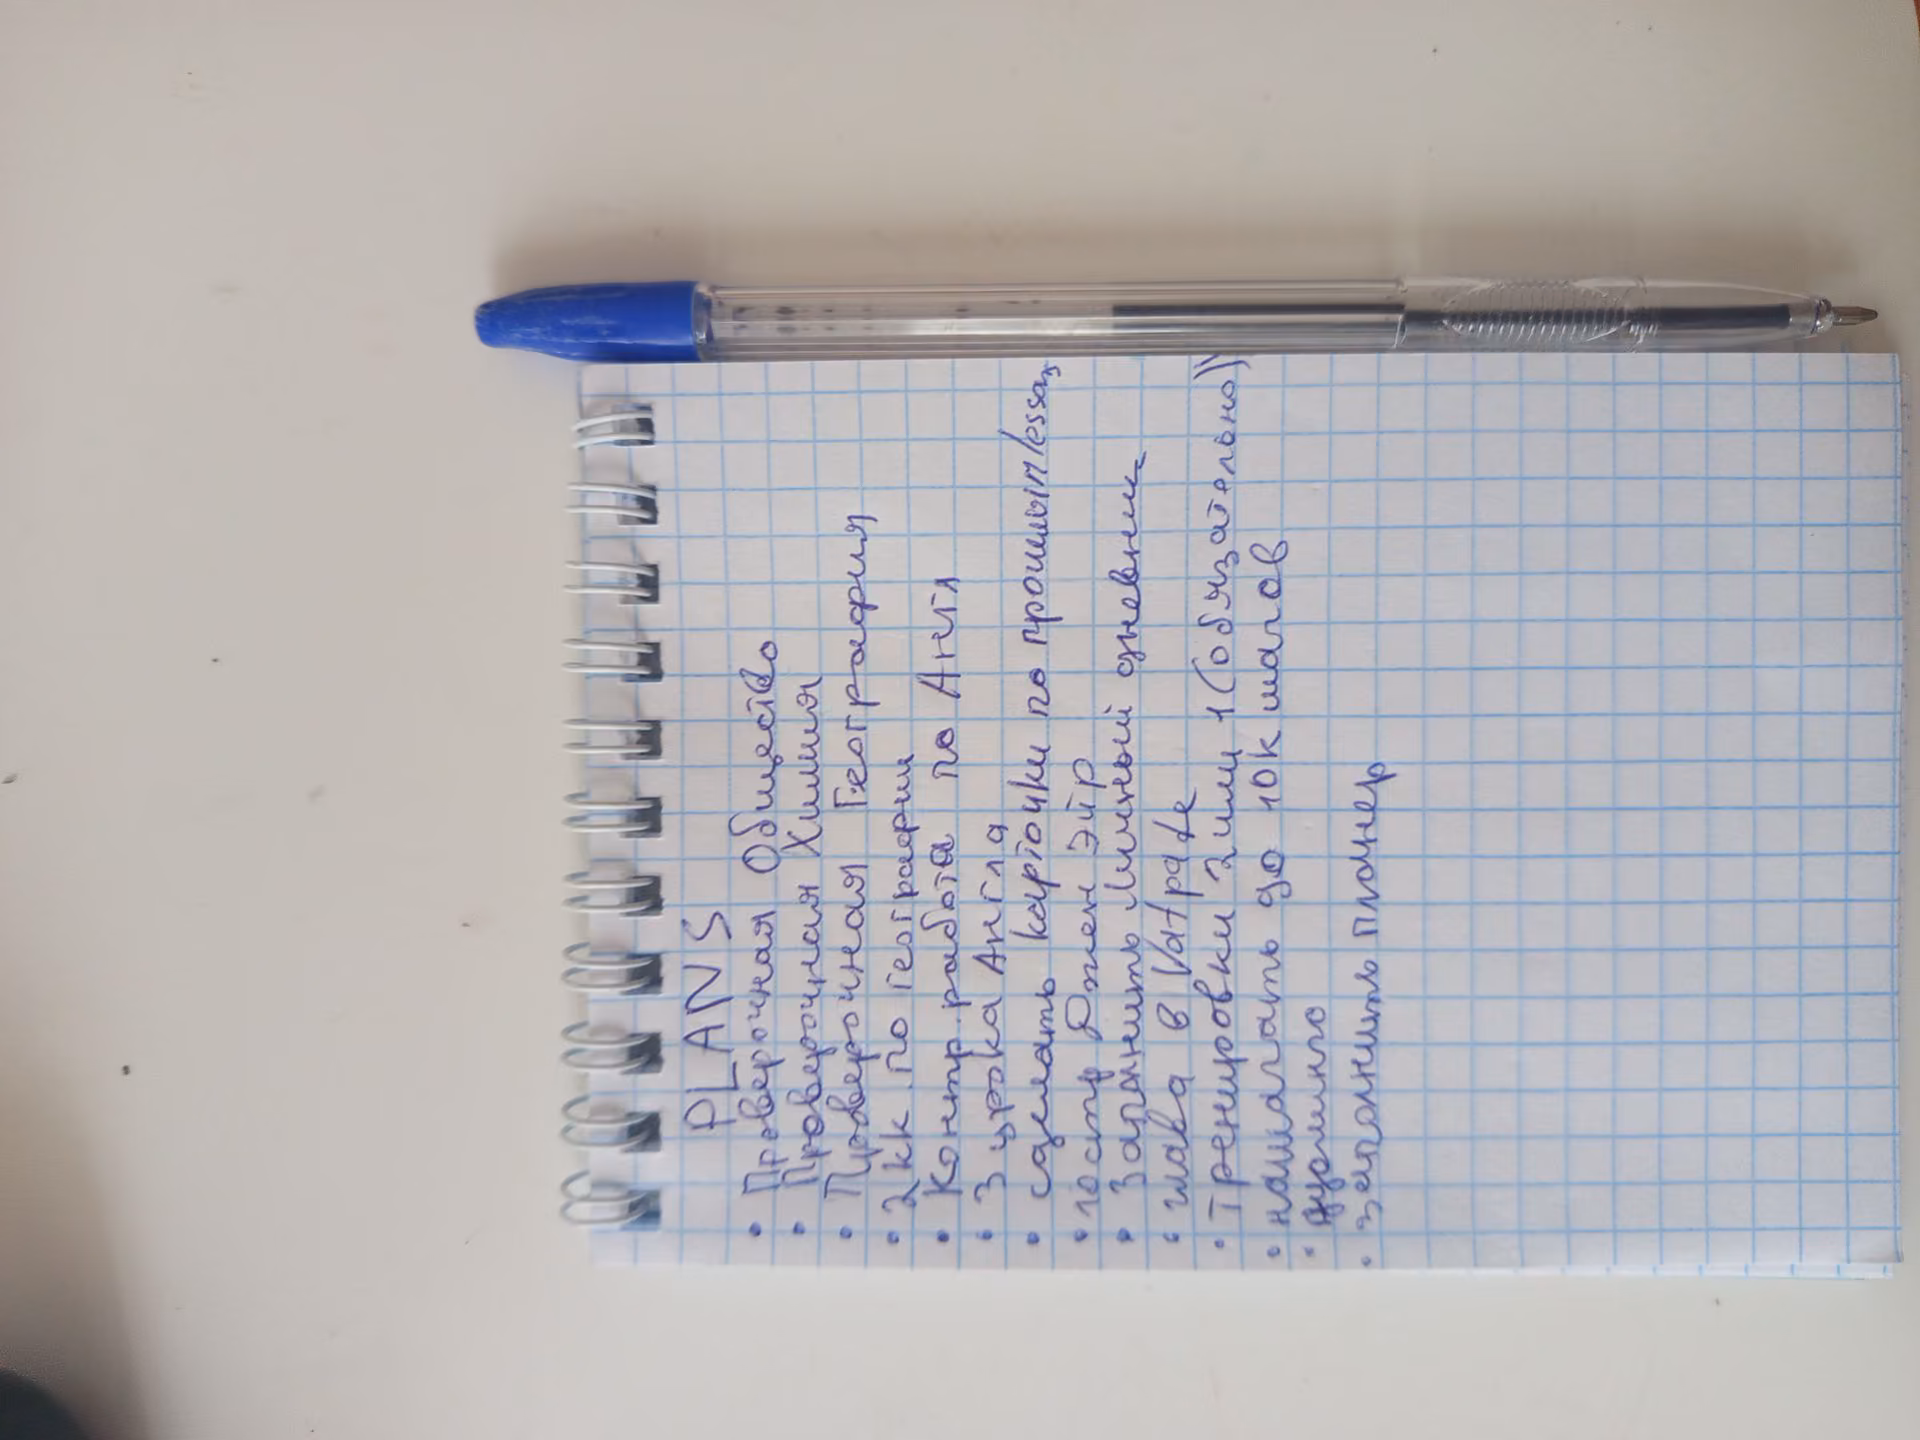 PLANS
• Проверочная Общество
• Проверочная Химия
• Проверочная География
• 2 кк по географии
• Контр. работа по Англ
• 3 урока Англа
• сделать карточки по прошлым/essay
• постр Джен Эйр
• Заполнить личный дневник
• глава в Vatpade
• Тренировки 2 или 1 (обязательно)
• нашагать до 10к шагов
• дуолинго
• заполнить планер